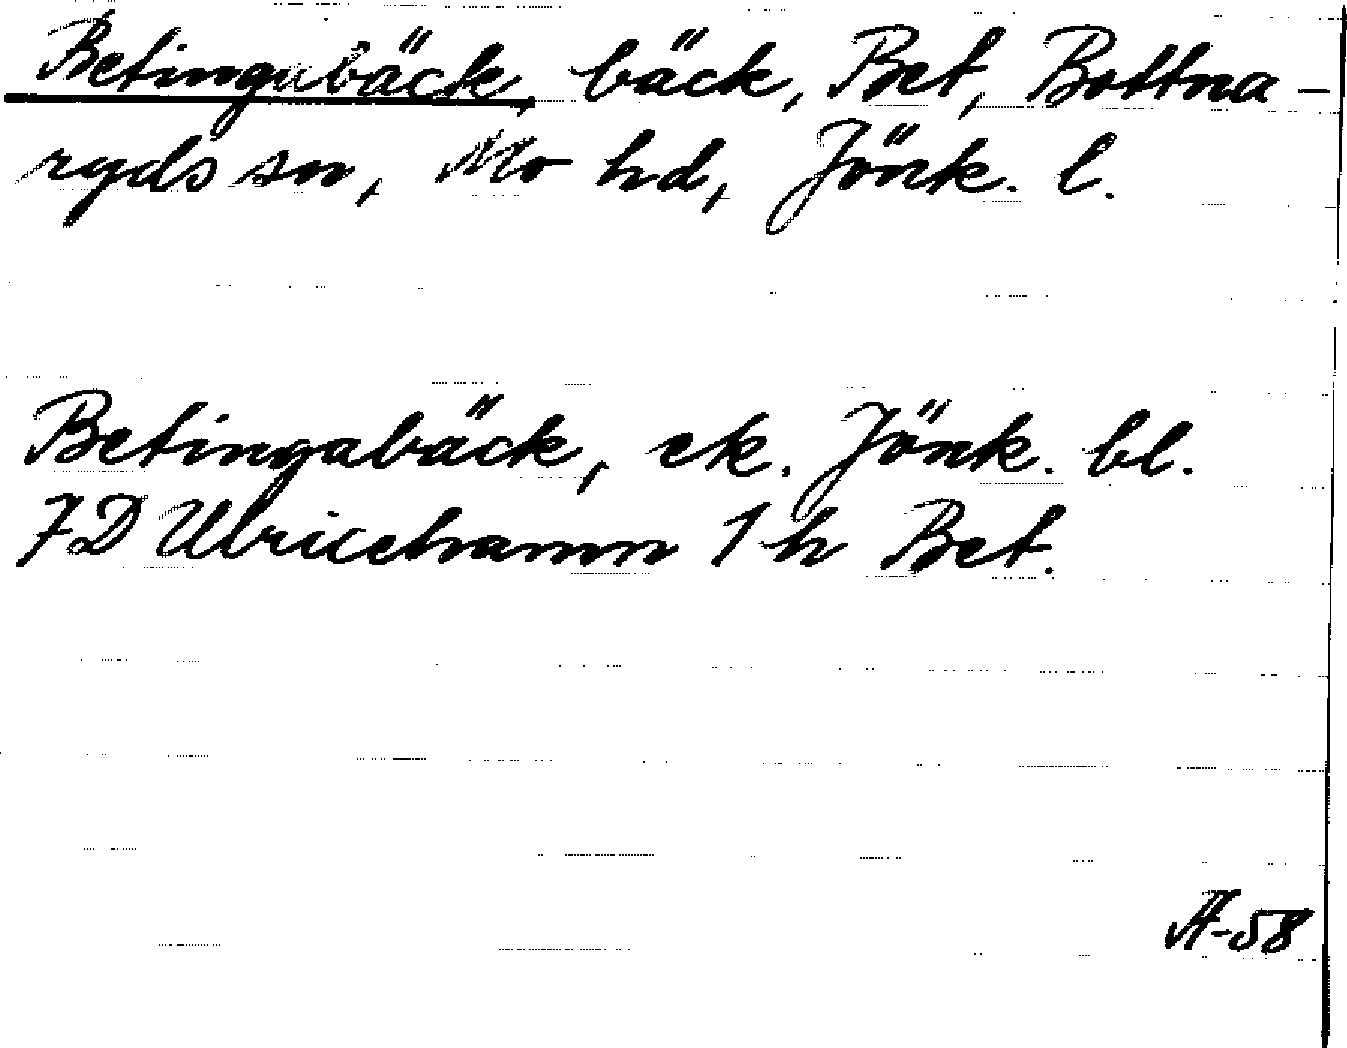 Betingabäck, bäck, Bet, Bottna-
ryds sn, Mo hd, Jönk. l.
Betingabäck, ek. Jönk. bl.
7D Ulricehamn 1 h Bet.
A-58